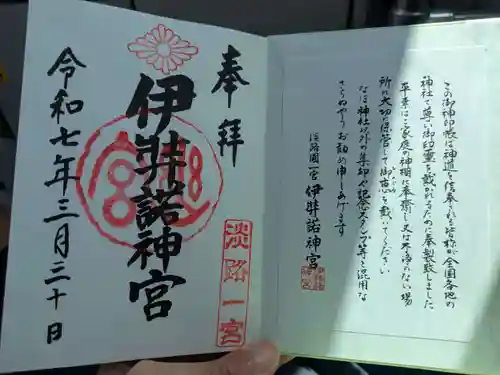 この御神印帳は神道を信奉される皆様が全国各地の
神社で尊い御印璽を戴かれるために奉製致しました
平素はご家庭の神棚に奉齋し又は不浄のない場
所に大切に保管して御恵を戴いてください
なほ神社以外の集印や記念スタンプ等と混用な
さらぬやうお勧め申しあげます
淡路國一宮 伊弉諾神宮
奉拝
淡路一宮
伊弉諾神宮
令和七年三月三十日